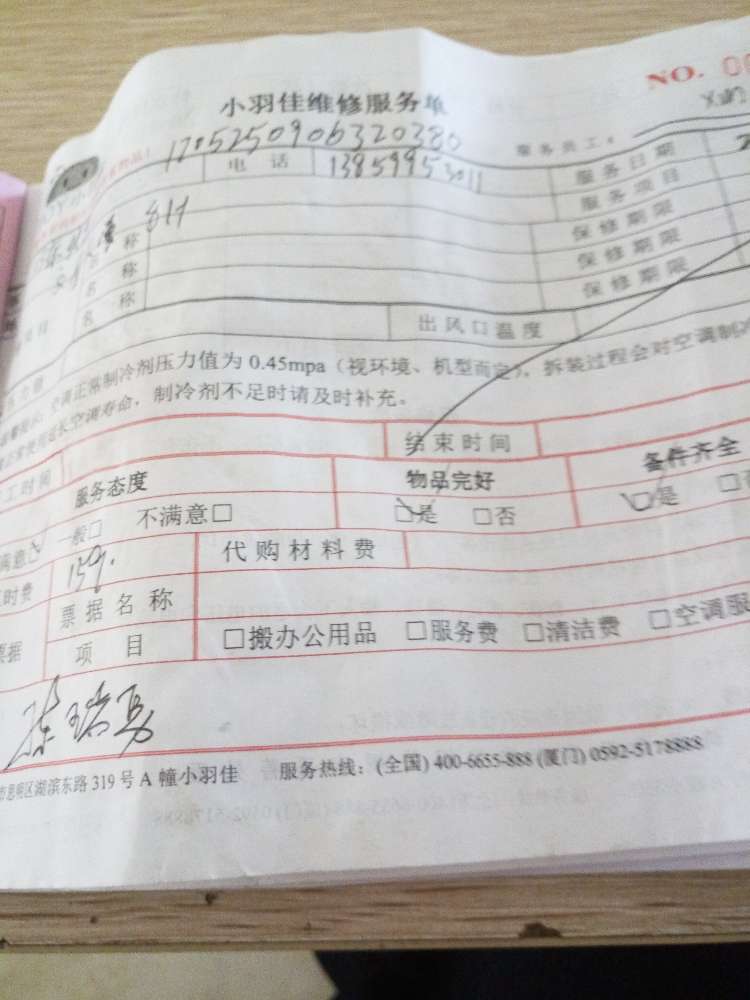 NO. 00
小羽佳维修服务单
1705250906320380
服务员工：
电话 138599953011
服务日期
服务项目
名称
保修期限
名称
保修期限
名称
保修期限
出风口温度
空调正常制冷剂压力值为 0.45mpa（视环境、机型而定），拆装过程会对空调制冷
长空调寿命，制冷剂不足时请及时补充。
工时间 结束时间
服务态度 物品完好 备件齐全
满意□ 一般□ 不满意□ □是 □否 □是 □否
时费 159. 代购材料费
票据 票据名称
项目 □搬办公用品 □服务费 □清洁费 □空调服
陈瑞勇
市思明区湖滨东路 319 号 A 幢小羽佳 服务热线：(全国) 400-6655-888 (厦门) 0592-5178888